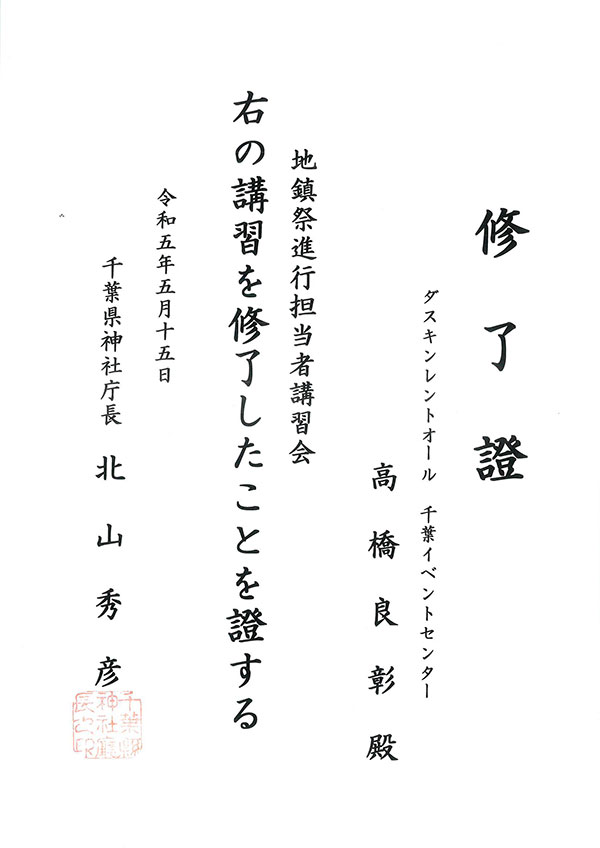 修了證
ダスキンレントオール 千葉イベントセンター
高橋良彰殿
地鎮祭進行担当者講習会
右の講習を修了したことを證する
令和五年五月十五日
千葉県神社庁長 北山秀彦
千葉縣
神社廳
長之印